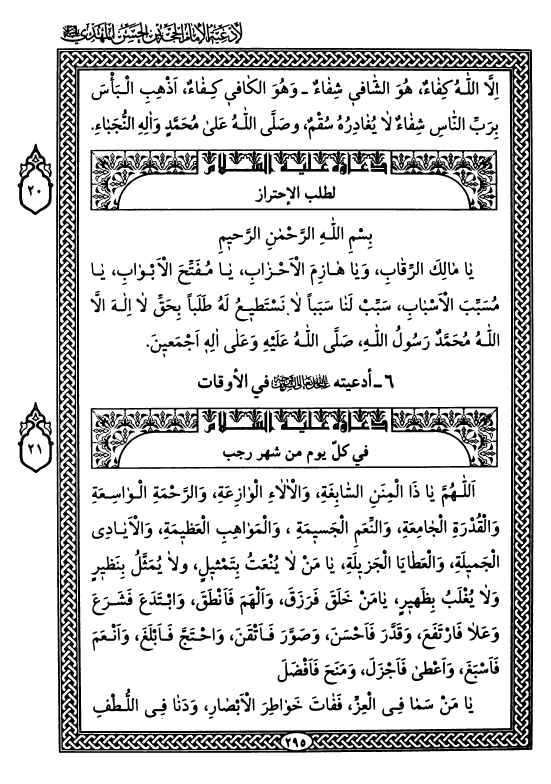 لأدعية الإمام الحجّة بن الحسن المهدي
اِلَّا اللّٰهُ كِفٰاءٌ، هُوَ الشّٰافي شِفٰاءٌ ـ وَهُوَ الكٰافي كِـفٰاءٌ، اَذْهِبِ الْبَأْسَ
بِرَبِّ النّٰاسِ شِفٰاءٌ لاٰ يُغٰادِرُهُ سُقْمٌ، وصَلَّى اللّٰهُ عَلىٰ مُحَمَّدٍ وَآلِهِ النُّجَبٰاءِ.
٢٠
دعاؤه عليه السلام
لطلب الإحتراز
بِسْمِ اللّٰهِ الرَّحْمٰنِ الرَّحيمِ
يٰا مٰالِكَ الرِّقٰابِ، وَيٰا هٰازِمَ الْاَحْزٰابِ، يٰا مُفَتِّحَ الْاَبْوٰابِ، يٰا
مُسَبِّبَ الْاَسْبٰابِ، سَبِّبْ لَنٰا سَبَباً لاٰ نَسْتَطيعُ لَهُ طَلَباً بِحَقِّ لاٰ اِلٰهَ اِلَّا
اللّٰهُ مُحَمَّدٌ رَسُولُ اللّٰهِ، صَلَّى اللّٰهُ عَلَيْهِ وَعَلىٰ اٰلِهِ اَجْمَعينَ.
٦ ـ أدعيته في الأوقات
٢١
دعاؤه عليه السلام
في كلّ يوم من شهر رجب
اَللّٰهُمَّ يٰا ذَا الْمِنَنِ السّٰابِغَةِ، وَالْاٰلاٰءِ الْوٰازِعَةِ، وَالرَّحْمَةِ الْوٰاسِعَةِ
وَالْقُدْرَةِ الْجٰامِعَةِ، وَالنِّعَمِ الْجَسيمَةِ ، وَالْمَوٰاهِبِ الْعَظيمَةِ، وَالْاَيٰادِى
الْجَميلَةِ، وَالْعَطٰايَا الْجَزيلَةِ، يٰا مَنْ لاٰ يُنْعَتُ بِتَمْثيلٍ، ولاٰ يُمَثَّلُ بِنَظيرٍ
وَلاٰ يُغْلَبُ بِظَهيرٍ، يٰامَنْ خَلَقَ فَرَزَقَ، وَاَلْهَمَ فَاَنْطَقَ، وَابْتَدَعَ فَشَرَعَ
وَعَلاٰ فَارْتَفَعَ، وَقَدَّرَ فَاَحْسَنَ، وَصَوَّرَ فَاَتْقَنَ، وَاحْتَجَّ فَاَبْلَغَ، وَاَنْعَمَ
فَاَسْبَغَ، وَاَعْطىٰ فَاَجْزَلَ، وَمَنَحَ فَاَفْضَلَ
يٰا مَنْ سَمٰا فِى الْعِزِّ، فَفٰاتَ خَوٰاطِرَ الْاَبْصٰارِ، وَدَنٰا فِى اللُّطْفِ
٢٩٥